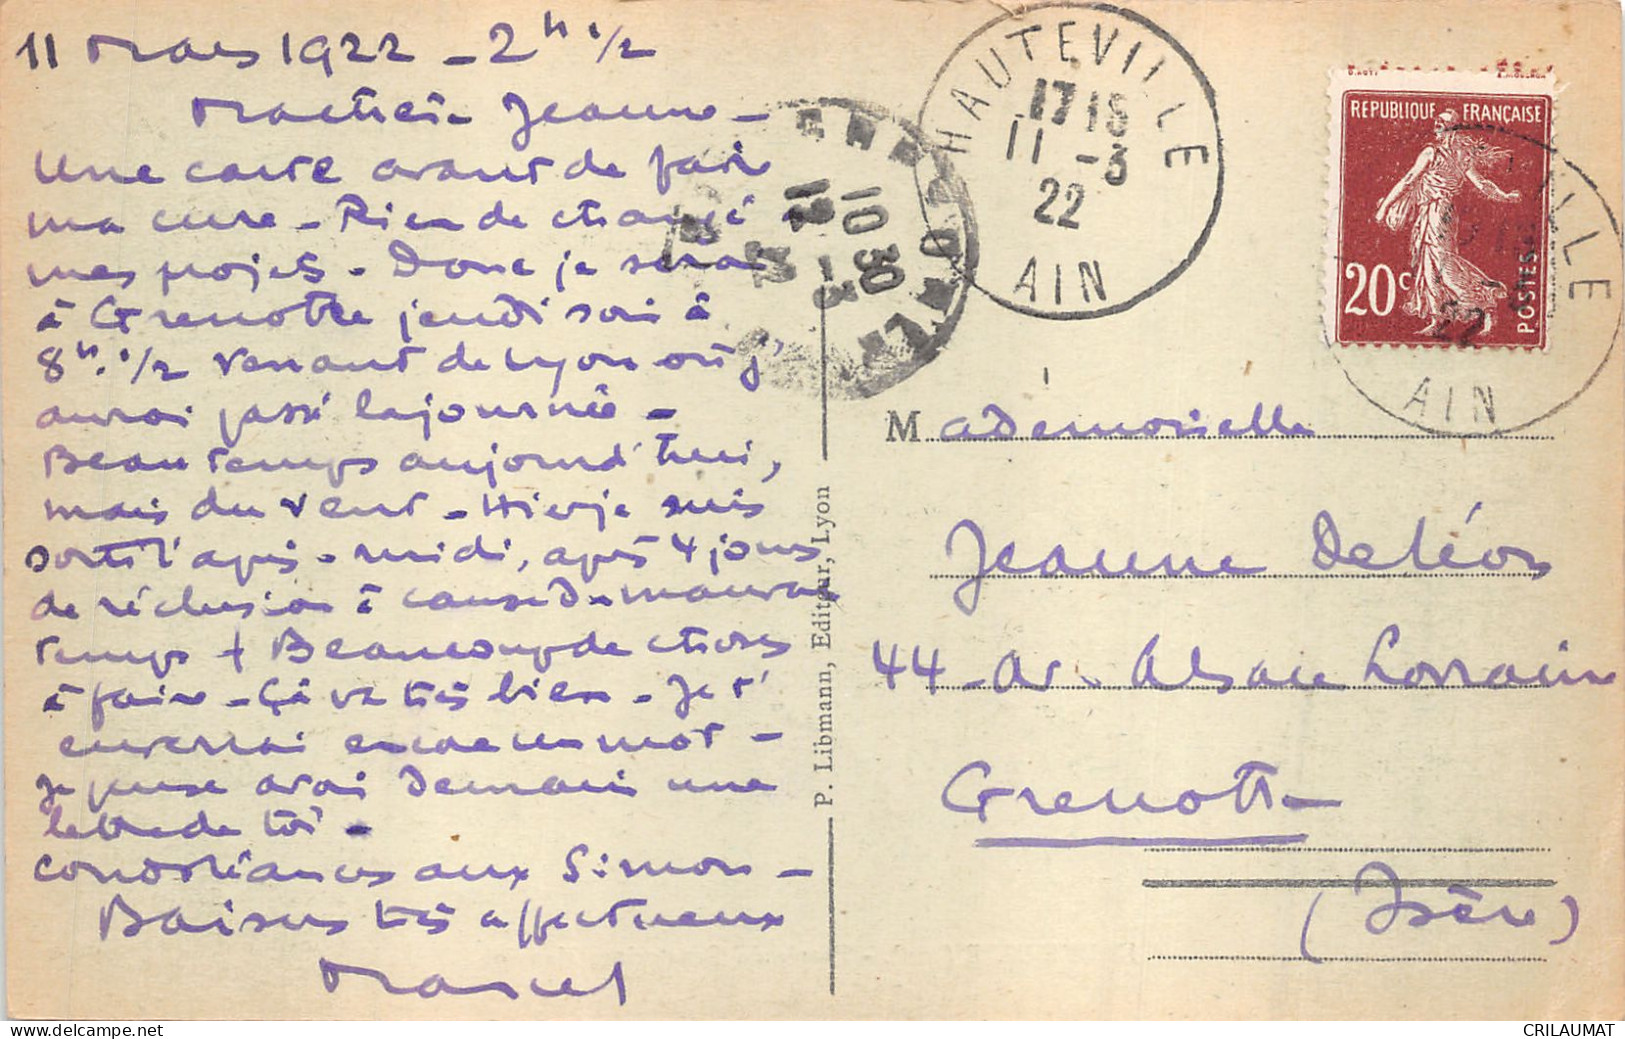 11 Mars 1922 - 2 h 1/2
Ma chère Jeanne -
Une carte avant de faire
ma cure - Rien de changé à
mes projets - Donc je serai
à Grenoble jeudi soir à
8 h. 1/2 venant de Lyon où j'
aurai passé la journée -
Beau temps aujourd'hui,
mais du vent - Hier je suis
sorti l'après-midi, après 4 jours
de réclusion à cause du mauvais
temps + Beaucoup de choses
à faire - Ça va très bien - Je t'
enverrai encore un mot -
Je pense avoir demain une
lettre de toi -
Condoléances aux Simon -
Baisers très affectueux
Marcel
P. Libmann, Editeur, Lyon
HAUTEVILLE
17 15
11 -3
22
AIN
GRENOBLE
10 30
REPUBLIQUE FRANÇAISE
20c
POSTES
22
AIN
Mademoiselle
Jeanne Deléon
44 - Av. Alsace Lorraine
Grenoble
(Isère)
CRILAUMAT